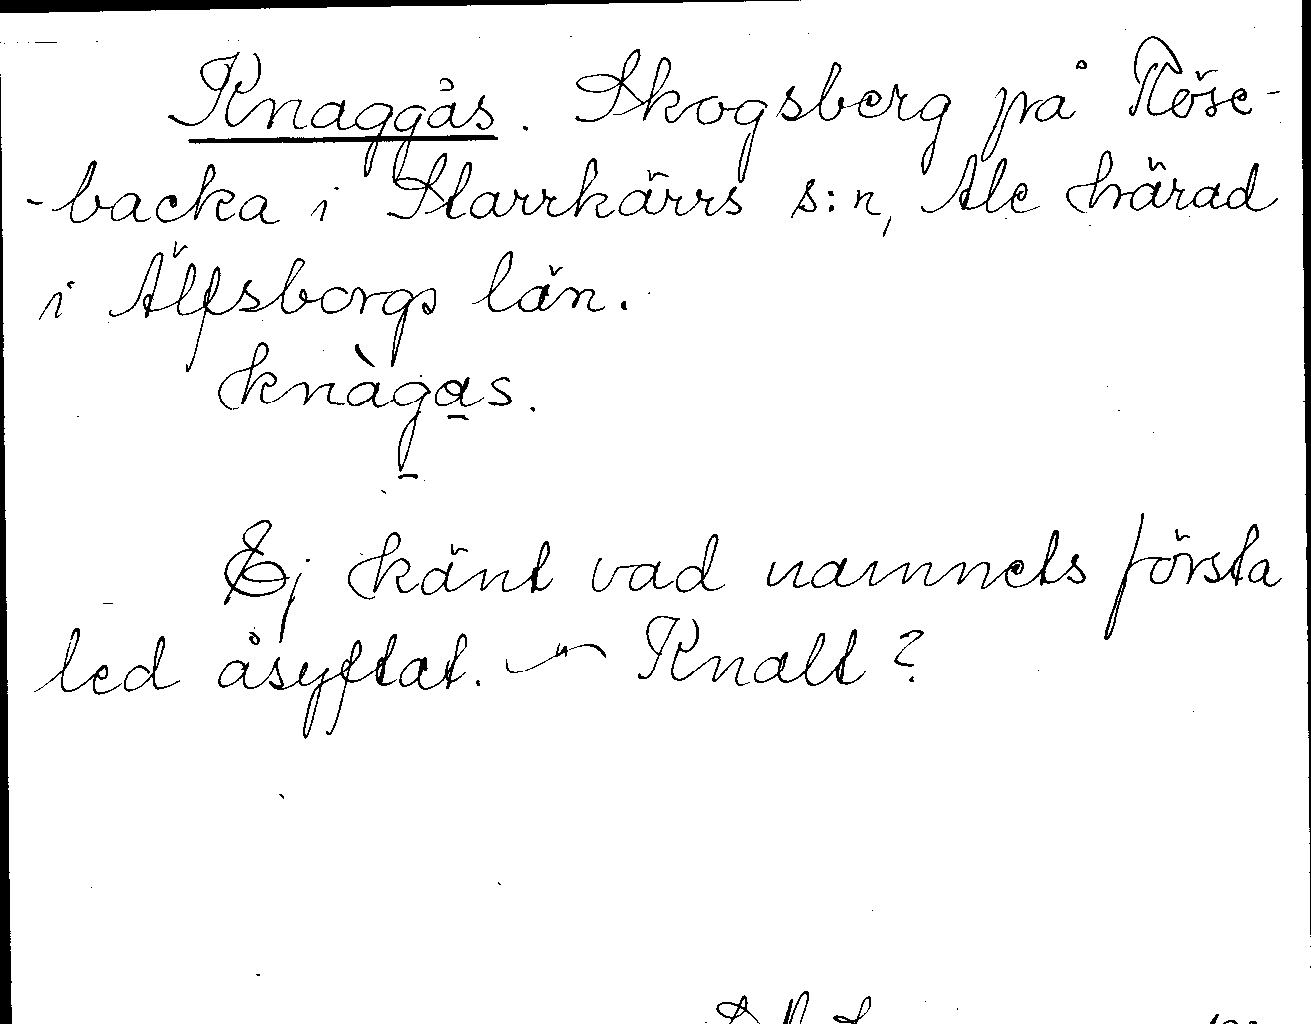 Knaggås. Skogsberg på Röse-
-backa i Starrkärrs s:n, Ale härad
i Älfsborgs län.
knàgas.
Ej känt vad namnets första
led åsyftat. Knalt?